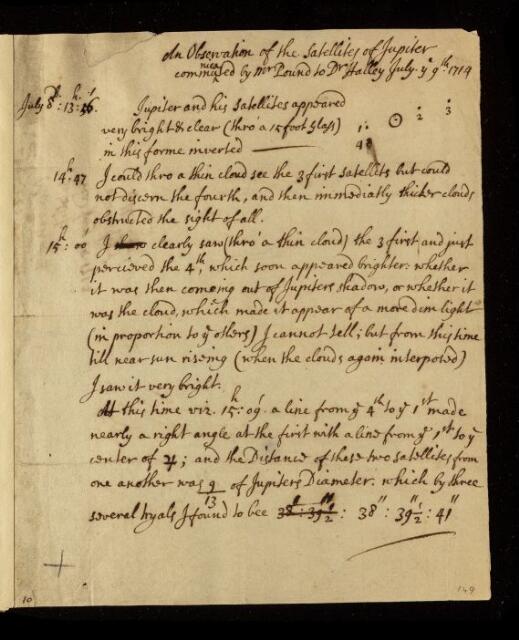 An Observation of the Satellites of Jupiter
communicated by Mr Pound to Dr Halley July. yͤ 9th. 1714
July 8d: 13h: 56'. Jupiter and his Satellites appeared
very bright & clear (thro' a 15 foot Glass)
in this forme inverted
1. ⊙ 2 3
4
14h: 47 I could thro a thin cloud see the 3 first satellits but could
not discern the fourth, and then immediatly thicker clouds
obstructed the sight of all.
15h: 00' I clearly saw (thro' a thin cloud) the 3 first and just
percieved the 4th, which soon appeared brighter: whether
it was then comeing out of Jupiters shadow, or whether it
was the cloud, which made it appear of a more dim light
(in proportion to yͤ others) I cannot tell; but from this time
till near sun rising (when the clouds again interposed)
I saw it very bright.
At this time viz. 15h. 09'. a line from yͤ 4th to yͤ 1st made
nearly a right angle at the first with a line from yͤ 1st to yͤ
center of ♃; and the Distance of these two satellites from
one another was 9/13 of Jupiters Diameter. which by three
several tryals I found to bee 38" : 39"½ : 38" : 39"½ : 41"
+
10
149